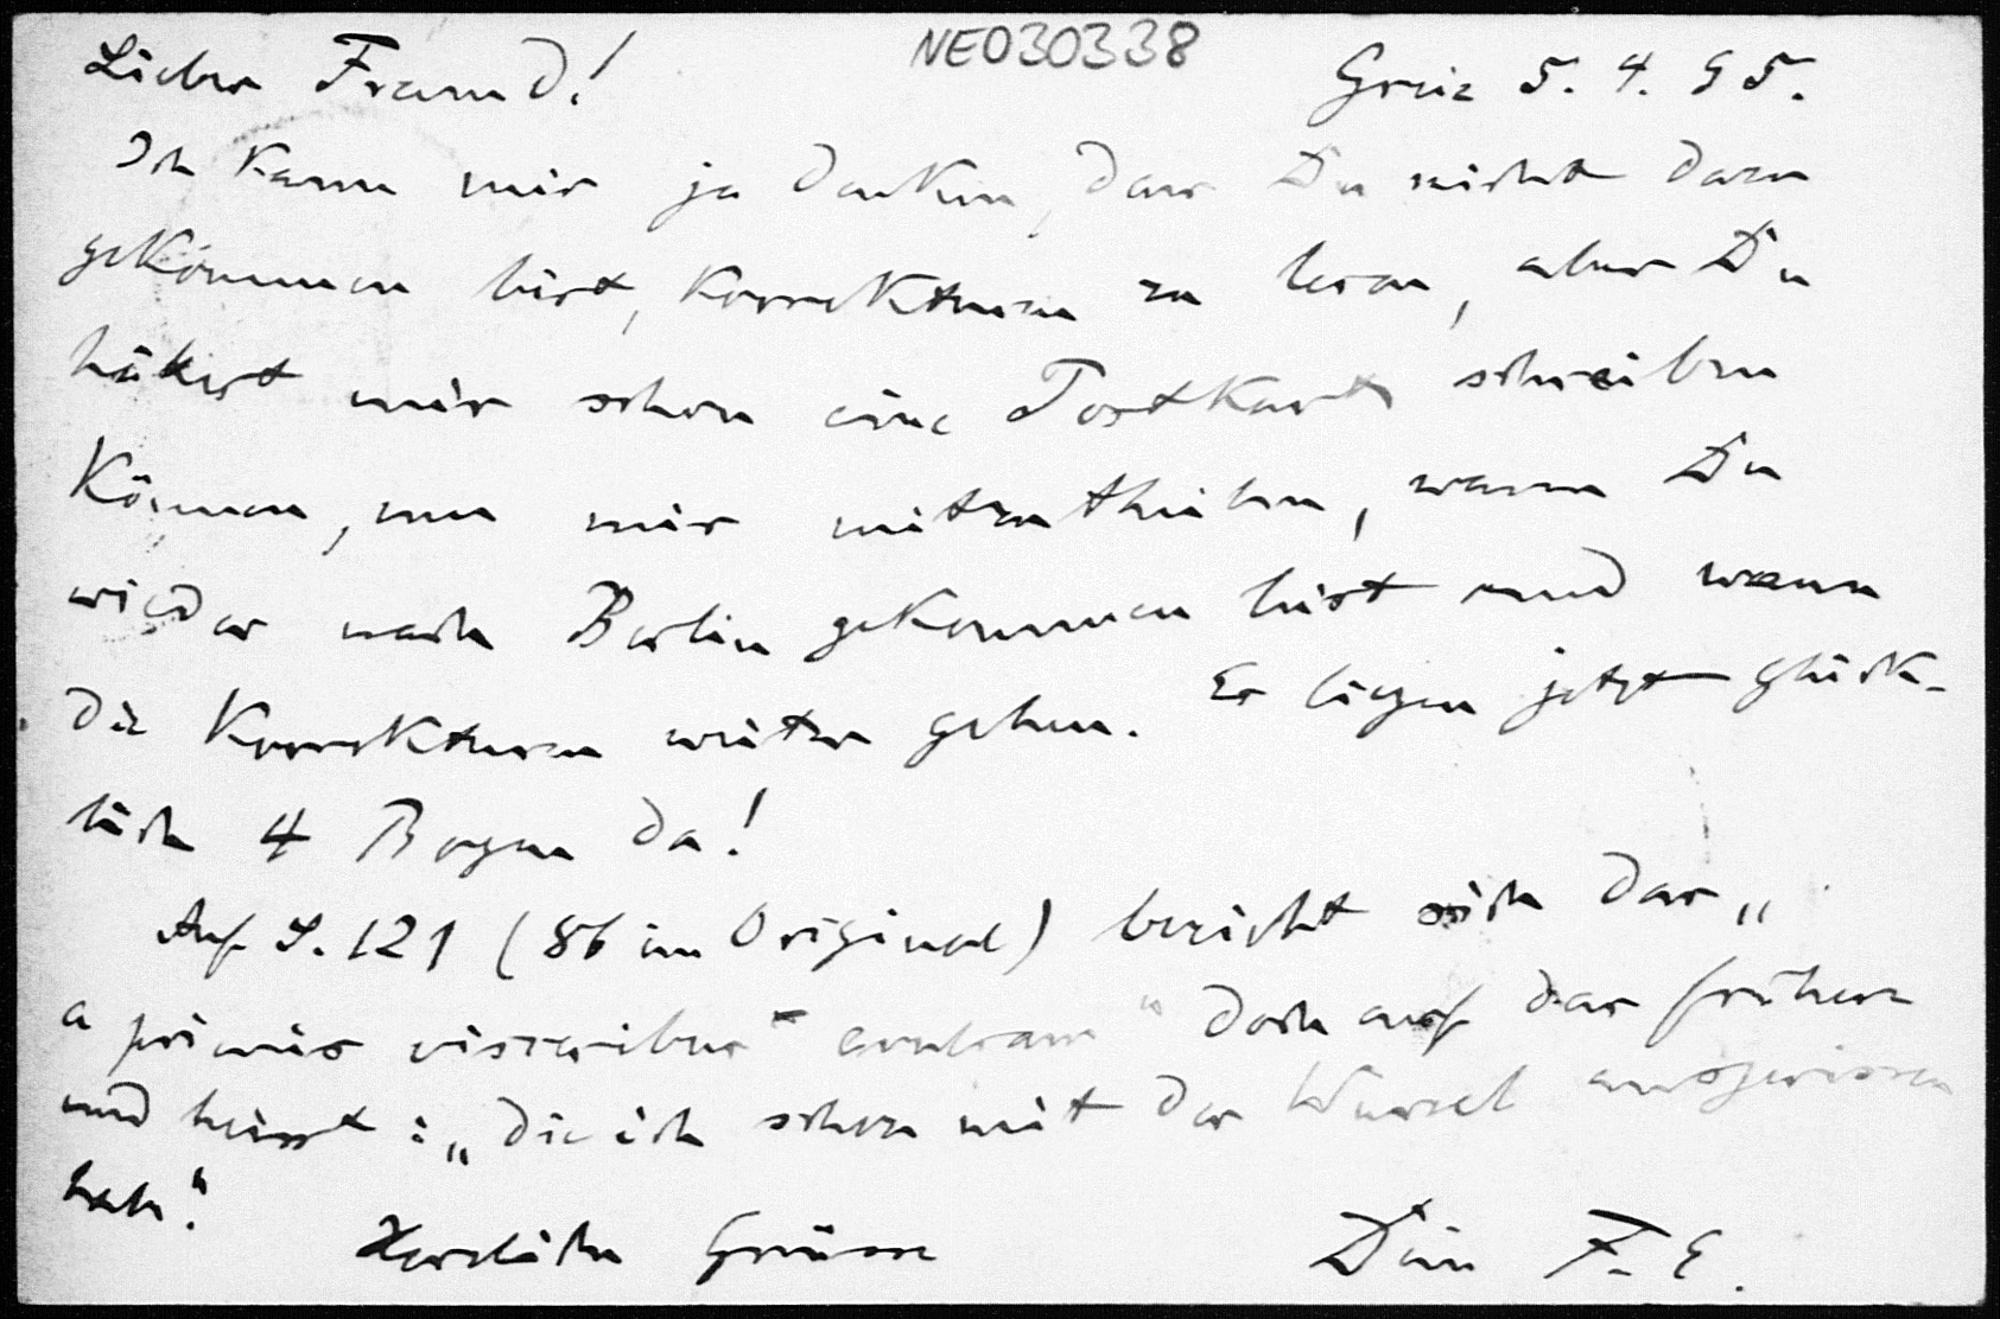 Lieber Freund!
NE030338
Greiz 5. 4. 95.
Ich kann mir ja denken, dass Du nicht dazu
gekommen bist, Korrekturen zu lesen, aber Du
hättest mir schon eine Postkarte schreiben
können, um mir mitzutheilen, wann Du
wieder nach Berlin gekommen bist und wann
die Korrekturen weiter gehen. Es liegen jetzt glück-
lich 4 Bogen da!
Auf S. 121 (86 im Original) bezieht sich das „
a primis visceribus" " doch auf das frühere
und heisst: „die ich schon mit der Wurzel ausgerissen
habe."
Herzliche Grüsse
Dein F. E.